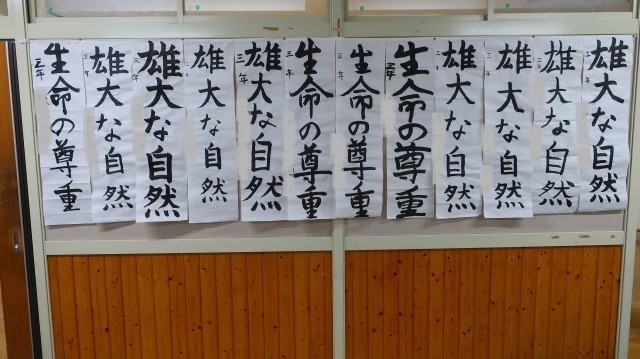 雄大な自然
三年
雄大な自然
三年
雄大な自然
三年
雄大な自然
三年
生命の尊重
三年
生命の尊重
三年
生命の尊重
三年
雄大な自然
三年
雄大な自然
三年
雄大な自然
三年
雄大な自然
三年
生命の尊重
三年